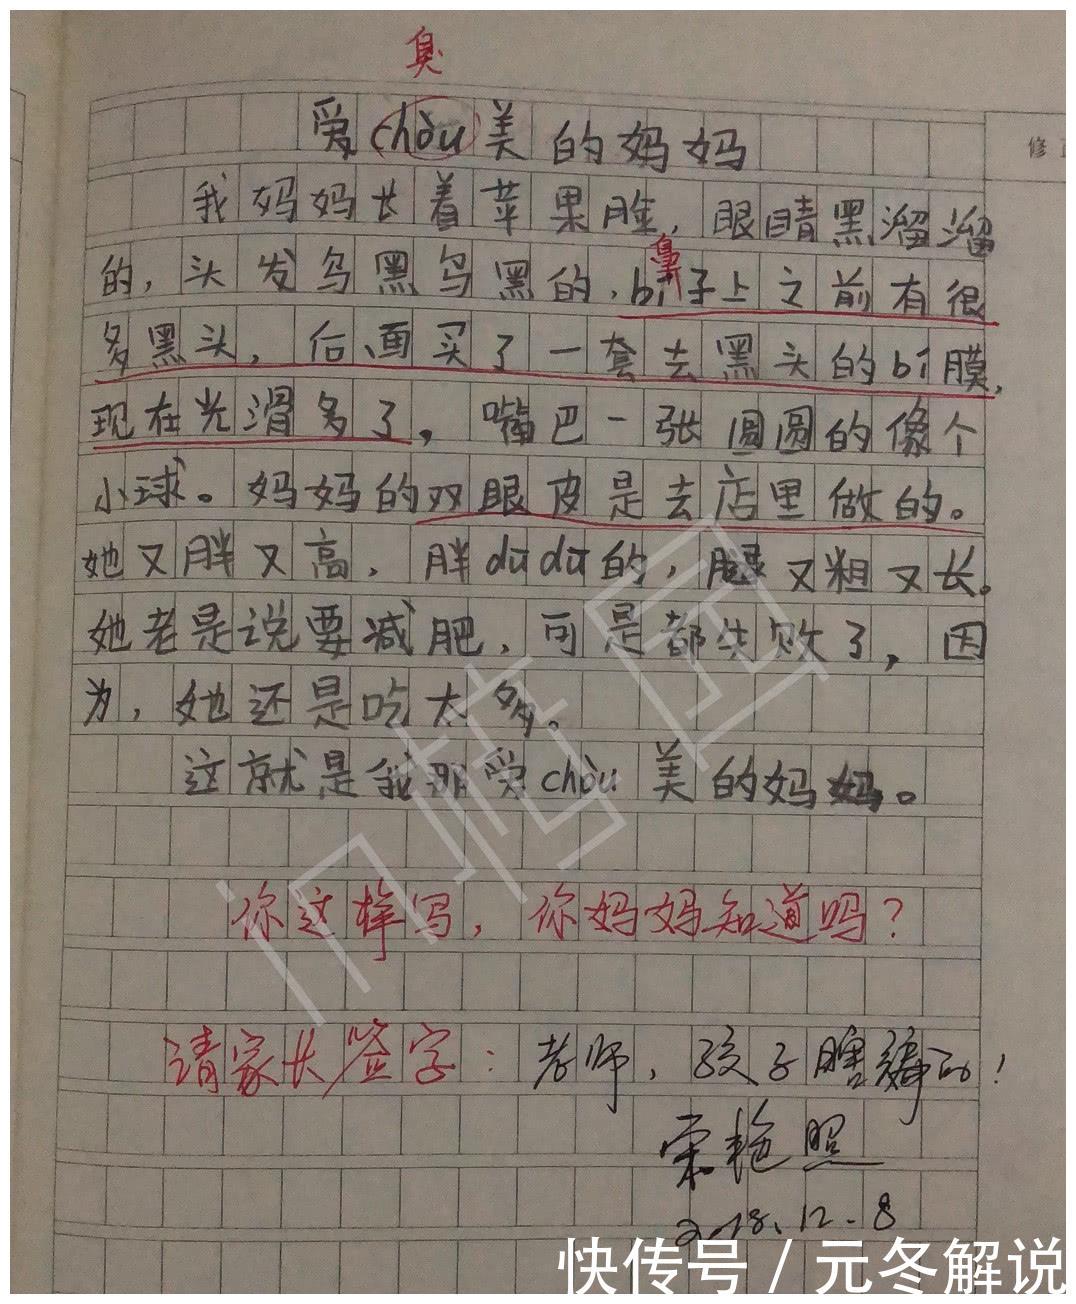 臭
爱chòu美的妈妈
修正
我妈妈长着苹果脸，眼睛黑溜溜
的，头发乌黑乌黑的，bí子上之前有很
鼻
多黑头，后面买了一套去黑头的bí膜，
现在光滑多了，嘴巴一张圆圆的像个
小球。妈妈的双眼皮是去店里做的。
她又胖又高，胖dūdū的，腿又粗又长。
她老是说要减肥，可是都失败了，因
为，她还是吃太多。
这就是我那爱chòu美的妈妈。
你这样写，你妈妈知道吗？
请家长签字：老师，孩子瞎编的！
2018.12.8
快传号/元冬解说